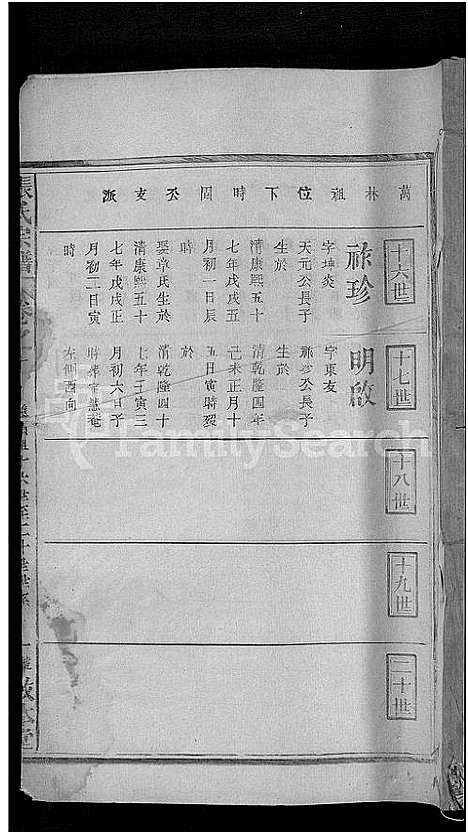 萬林祖位下時同公支派
十六世
祿珍
字坤炎
天元公長子
生於
清康熙五十
七年戊戌五
月初一日辰
時
娶章氏生於
清康熙五十
七年戊戌正
月初二日寅
時
十七世
明啟
字東友
祿珍公長子
生於
清乾隆四年
己未正月十
五日寅時歿
於
清乾隆四十
七年壬寅三
月初六日子
時葬定慧菴
左側酉向
十八世
十九世
二十世
張氏宗譜
FamilySearch